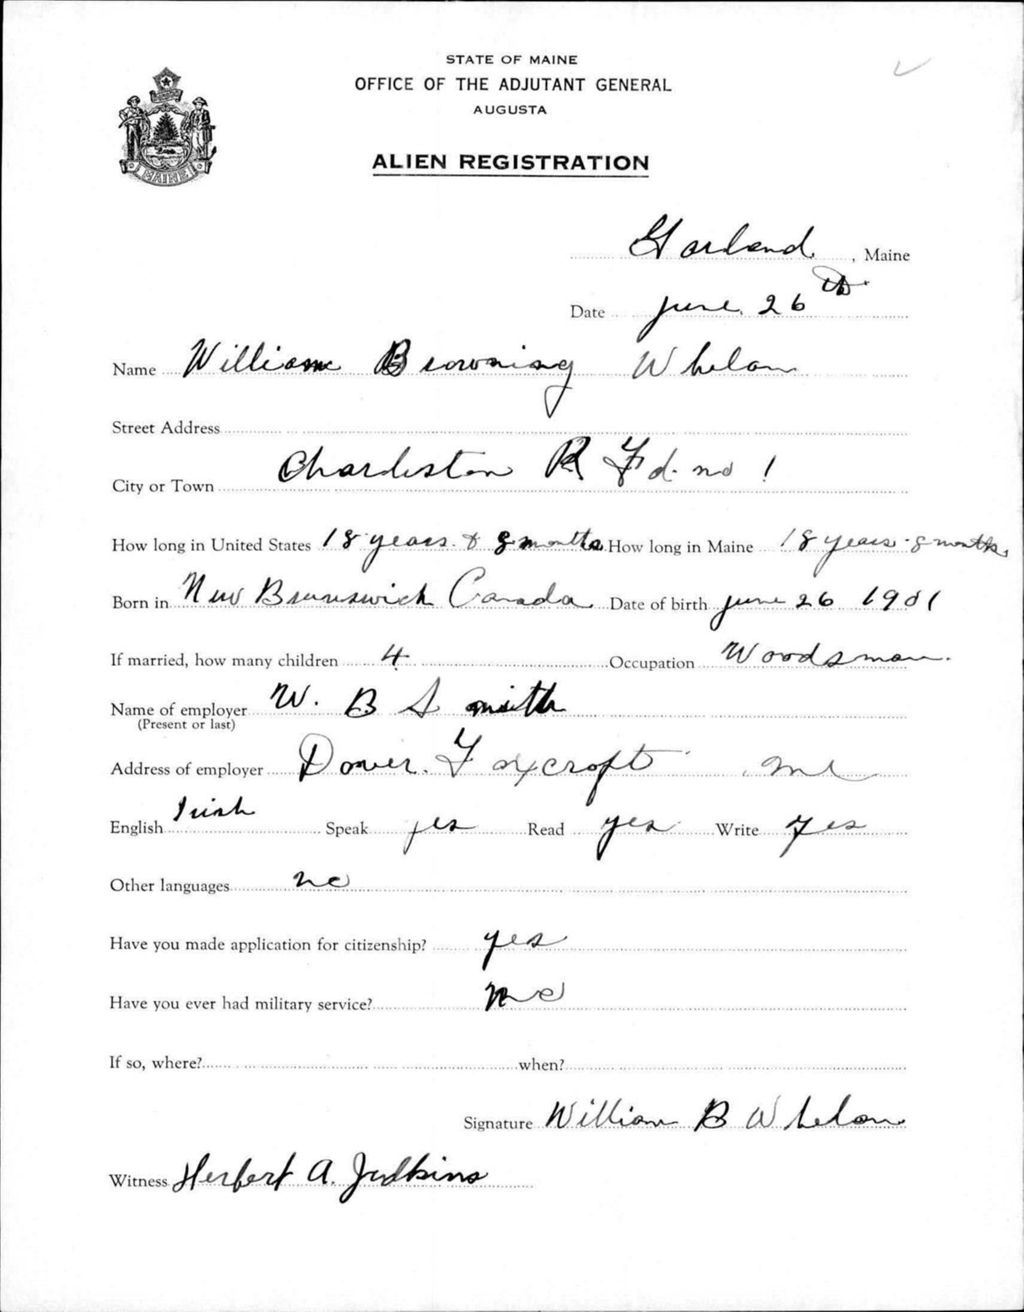 STATE OF MAINE
OFFICE OF THE ADJUTANT GENERAL
AUGUSTA
ALIEN REGISTRATION
MAINE
Garland, Maine
Date June 26th
Name William Browning Whelan
Street Address
City or Town Charleston R Fd. no 1
How long in United States 18 years & 8 months How long in Maine 18 years 8 months
Born in New Brunswick Canada Date of birth June 26 1901
If married, how many children 4 Occupation Woodsman.
Name of employer W. B Smith
(Present or last)
Address of employer Dover. Foxcroft me
English Irish Speak yes Read yes Write yes
Other languages no
Have you made application for citizenship? yes
Have you ever had military service? no
If so, where? when?
Signature William B Whelan
Witness Herbert A. Judkins